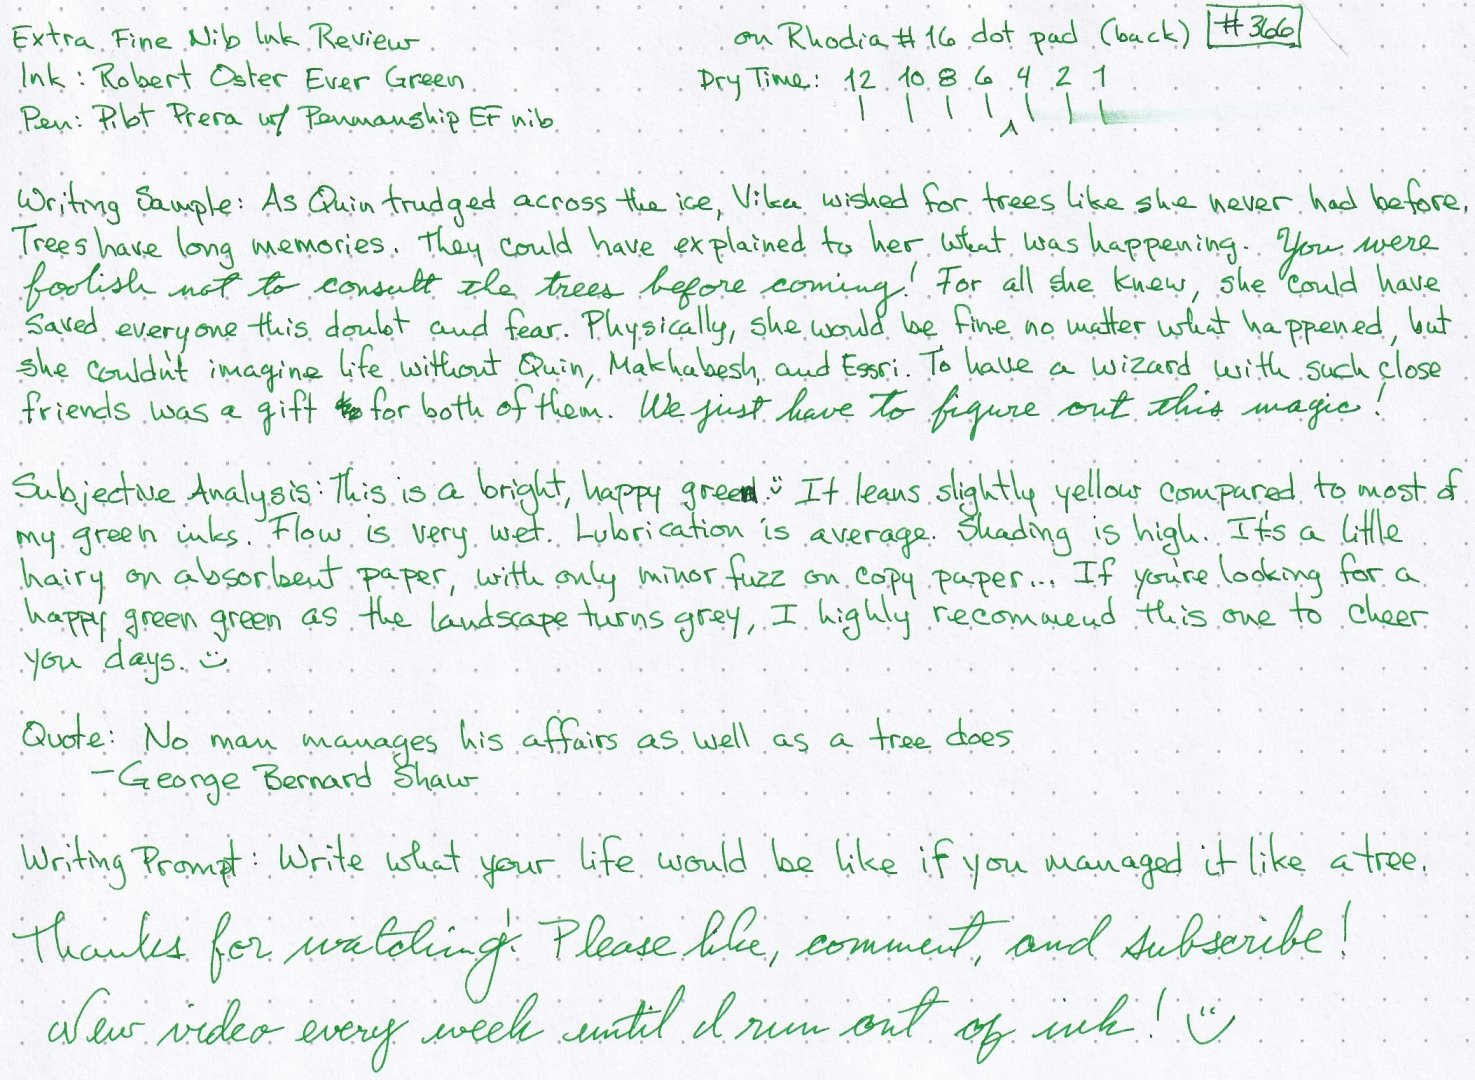 Extra Fine Nib Ink Review
on Rhodia #16 dot pad (back) #366
Ink: Robert Oster Ever Green
Dry Time: 12 10 8 6 4 2 1
Pen: Pilot Prera w/ Penmanship EF nib
Writing Sample: As Quin trudged across the ice, Vika wished for trees like she never had before.
Trees have long memories. They could have explained to her what was happening. You were
foolish not to consult the trees before coming! For all she knew, she could have
saved everyone this doubt and fear. Physically, she would be fine no matter what happened, but
she couldn't imagine life without Quin, Makhabesh, and Essri. To have a wizard with such close
friends was a gift for both of them. We just have to figure out this magic!
Subjective Analysis: This is a bright, happy green. It leans slightly yellow compared to most of
my green inks. Flow is very wet. Lubrication is average. Shading is high. It's a little
hairy on absorbent paper, with only minor fuzz on copy paper... If you're looking for a
happy green green as the landscape turns grey, I highly recommend this one to cheer
you days.
Quote: No man manages his affairs as well as a tree does
- George Bernard Shaw
Writing Prompt: Write what your life would be like if you managed it like a tree.
Thanks for watching! Please like, comment, and subscribe!
New video every week until I run out of ink!